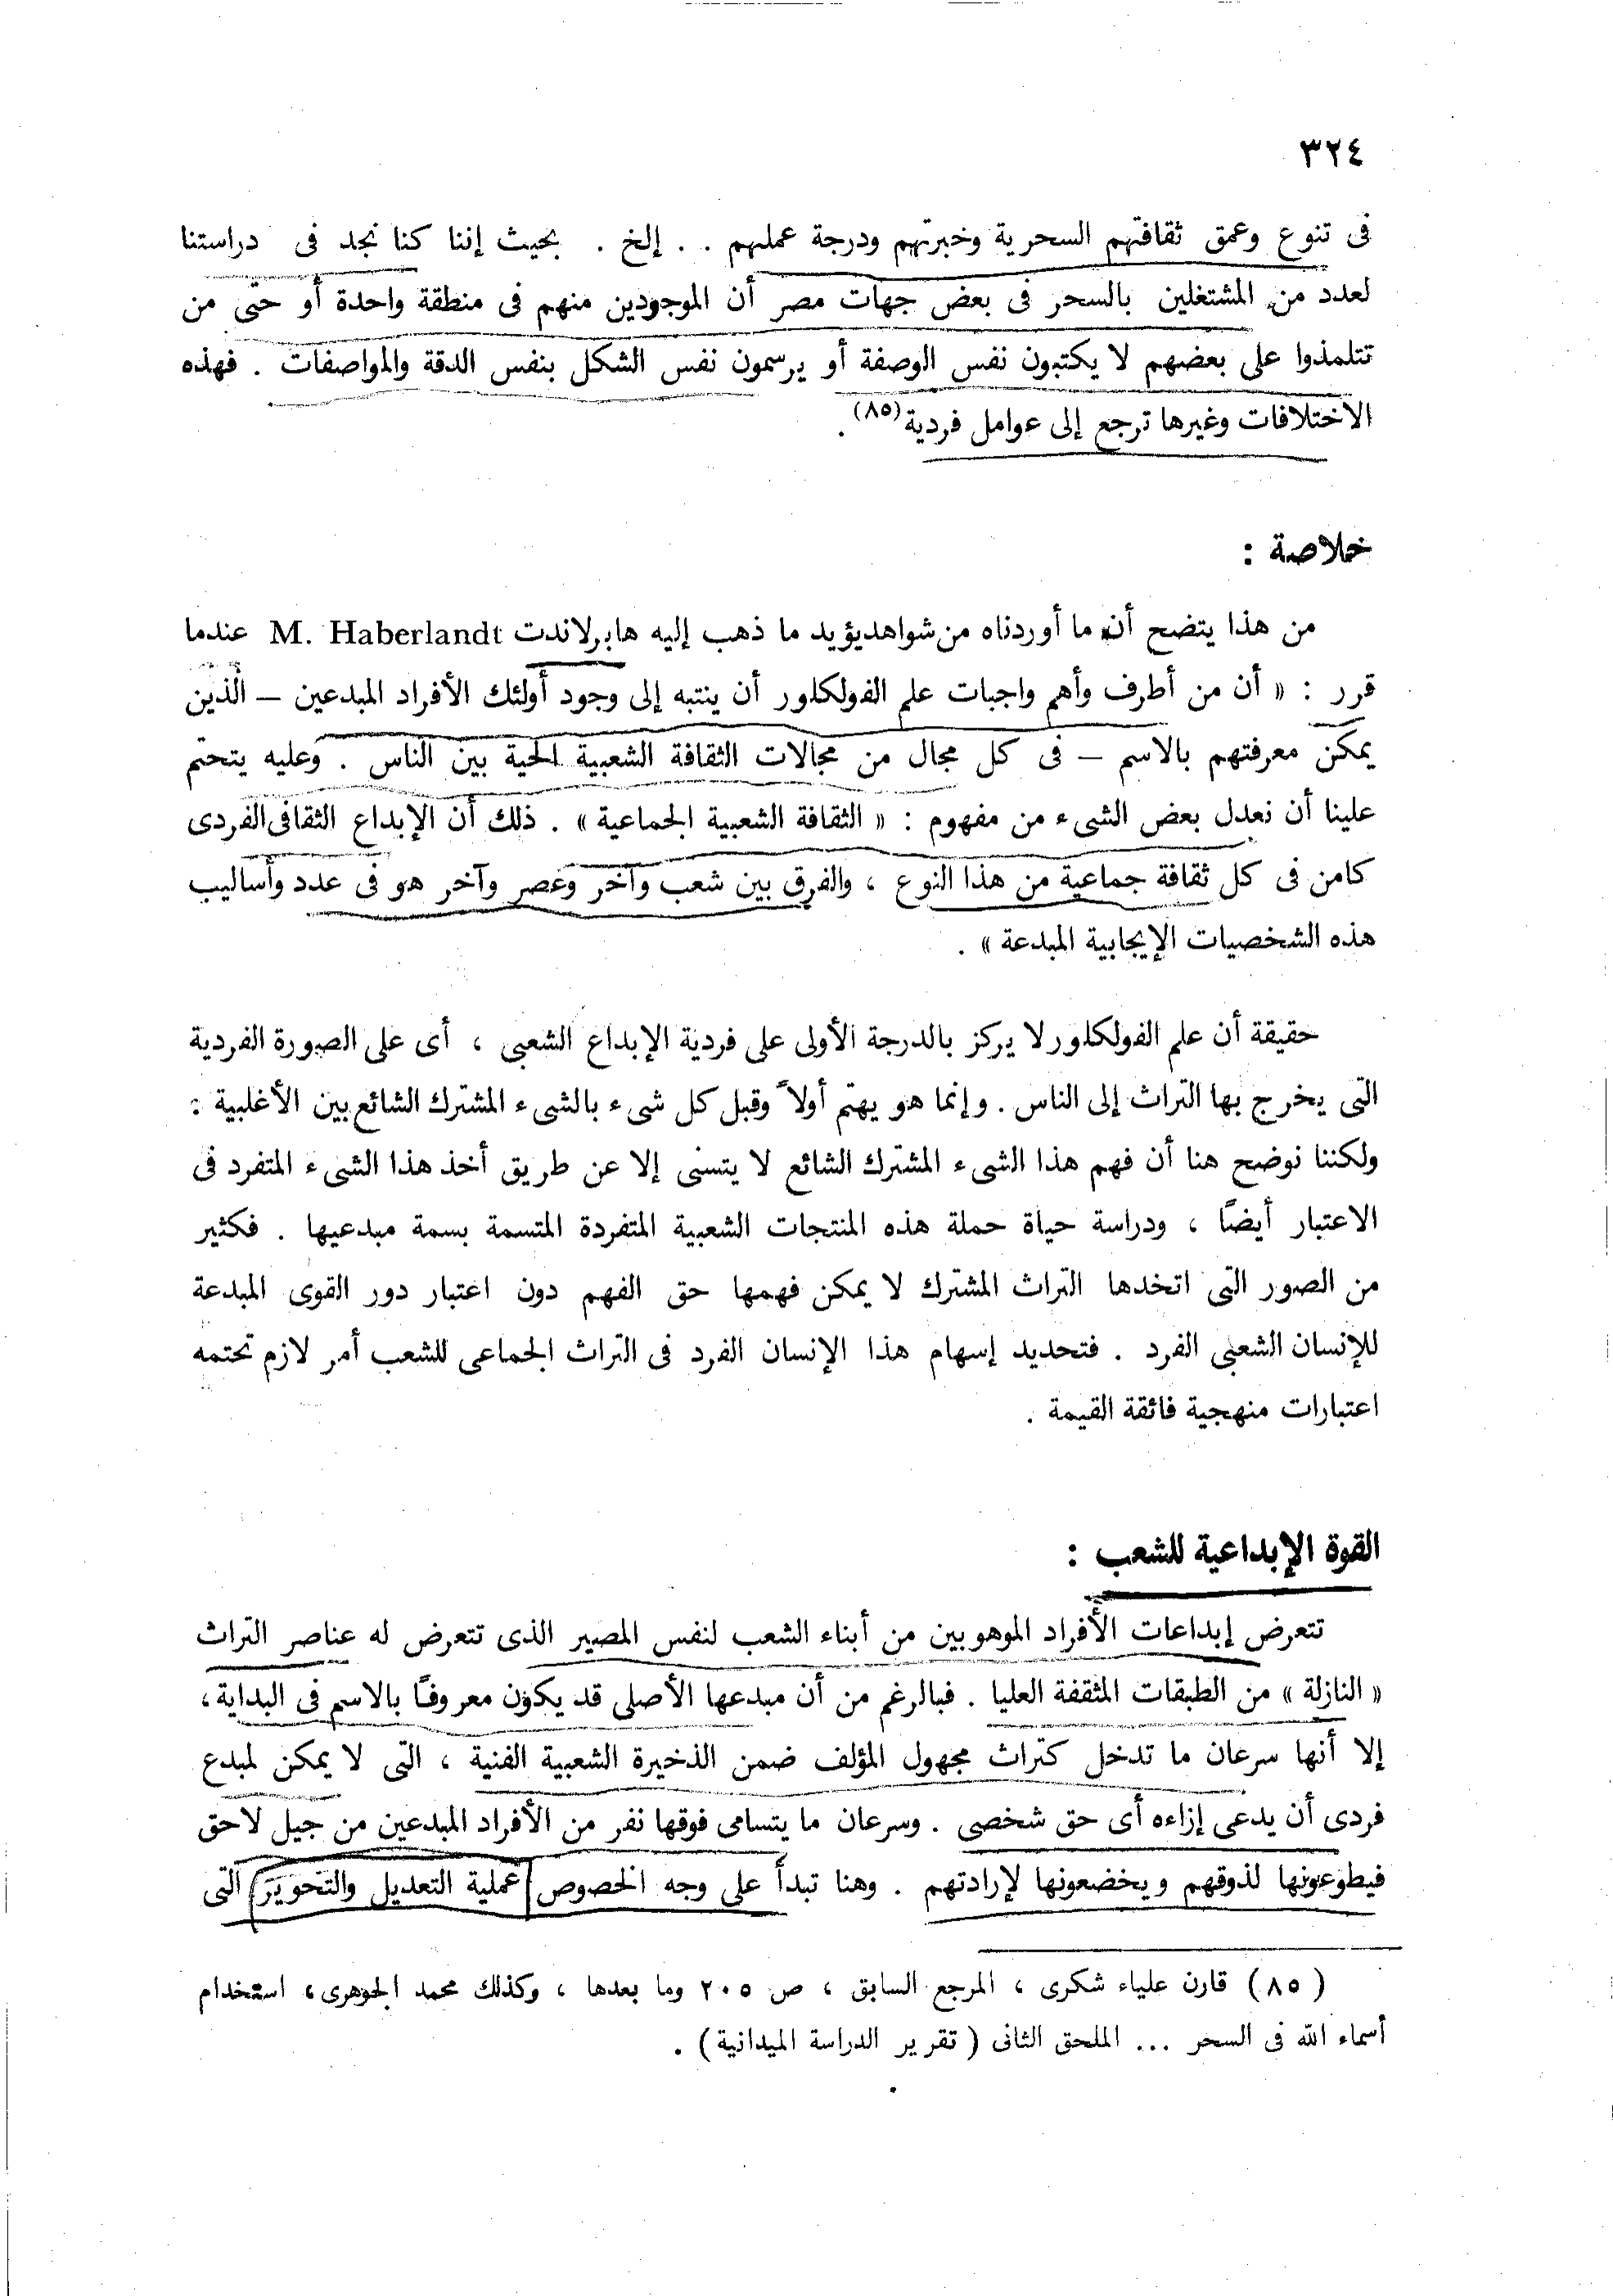 ٣٢٤
فى تنوع وعمق ثقافتهم السحرية وخبرتهم ودرجة عملهم . . إلخ . بحيث إننا كنا نجد فى دراستنا
لعدد من المشتغلين بالسحر فى بعض جهات مصر أن الموجودين منهم فى منطقة واحدة أو حتى من
تتلمذوا على بعضهم لا يكتبون نفس الوصفة أو يرسمون نفس الشكل بنفس الدقة والمواصفات . فهذه
الاختلافات وغيرها ترجع إلى عوامل فردية (٨٥) .
خلاصة :
من هذا يتضح أن ما أوردناه من شواهد يؤيد ما ذهب إليه هابرلاندت M. Haberlandt عندما
قرر : « أن من أطرف وأهم واجبات علم الفولكلور أن ينتبه إلى وجود أولئك الأفراد المبدعين – الذين
يمكن معرفتهم بالاسم – فى كل مجال من مجالات الثقافة الشعبية الحية بين الناس . وعليه يتحتم
علينا أن نعدل بعض الشىء من مفهوم : « الثقافة الشعبية الجماعية » . ذلك أن الإبداع الثقافى الفردى
كامن فى كل ثقافة جماعية من هذا النوع ، والفرق بين شعب وآخر وعصر وآخر هو فى عدد وأساليب
هذه الشخصيات الإيجابية المبدعة » .
حقيقة أن علم الفولكلور لا يركز بالدرجة الأولى على فردية الإبداع الشعبى ، أى على الصورة الفردية
التى يخرج بها التراث إلى الناس . وإنما هو يهتم أولاً وقبل كل شىء بالشىء المشترك الشائع بين الأغلبية :
ولكننا نوضح هنا أن فهم هذا الشىء المشترك الشائع لا يتسنى إلا عن طريق أخذ هذا الشىء المتفرد فى
الاعتبار أيضًا ، ودراسة حياة حملة هذه المنتجات الشعبية المتفردة المتسمة بسمة مبدعيها . فكثير
من الصور التى اتخدها التراث المشترك لا يمكن فهمها حق الفهم دون اعتبار دور القوى المبدعة
للإنسان الشعبى الفرد . فتحديد إسهام هذا الإنسان الفرد فى التراث الجماعى للشعب أمر لازم تحتمه
اعتبارات منهجية فائقة القيمة .
القوة الإبداعية للشعب :
تتعرض إبداعات الأفراد الموهوبين من أبناء الشعب لنفس المصير الذى تتعرض له عناصر التراث
« النازلة » من الطبقات المثقفة العليا . فبالرغم من أن مبدعها الأصلى قد يكون معروفًا بالاسم فى البداية ،
إلا أنها سرعان ما تدخل كتراث مجهول المؤلف ضمن الذخيرة الشعبية الفنية ، التى لا يمكن لمبدع
فردى أن يدعى إزاءه أى حق شخصى . وسرعان ما يتسامى فوقها نفر من الأفراد المبدعين من جيل لاحق
فيطوعونها لذوقهم ويخضعونها لإرادتهم . وهنا تبدأ على وجه الخصوص عملية التعديل والتحوير التى
(٨٥) قارن علياء شكرى ، المرجع السابق ، ص ٢٠٥ وما بعدها ، وكذلك محمد الجوهرى ، استخدام
أسماء الله فى السحر ... الملحق الثانى ( تقرير الدراسة الميدانية ) .